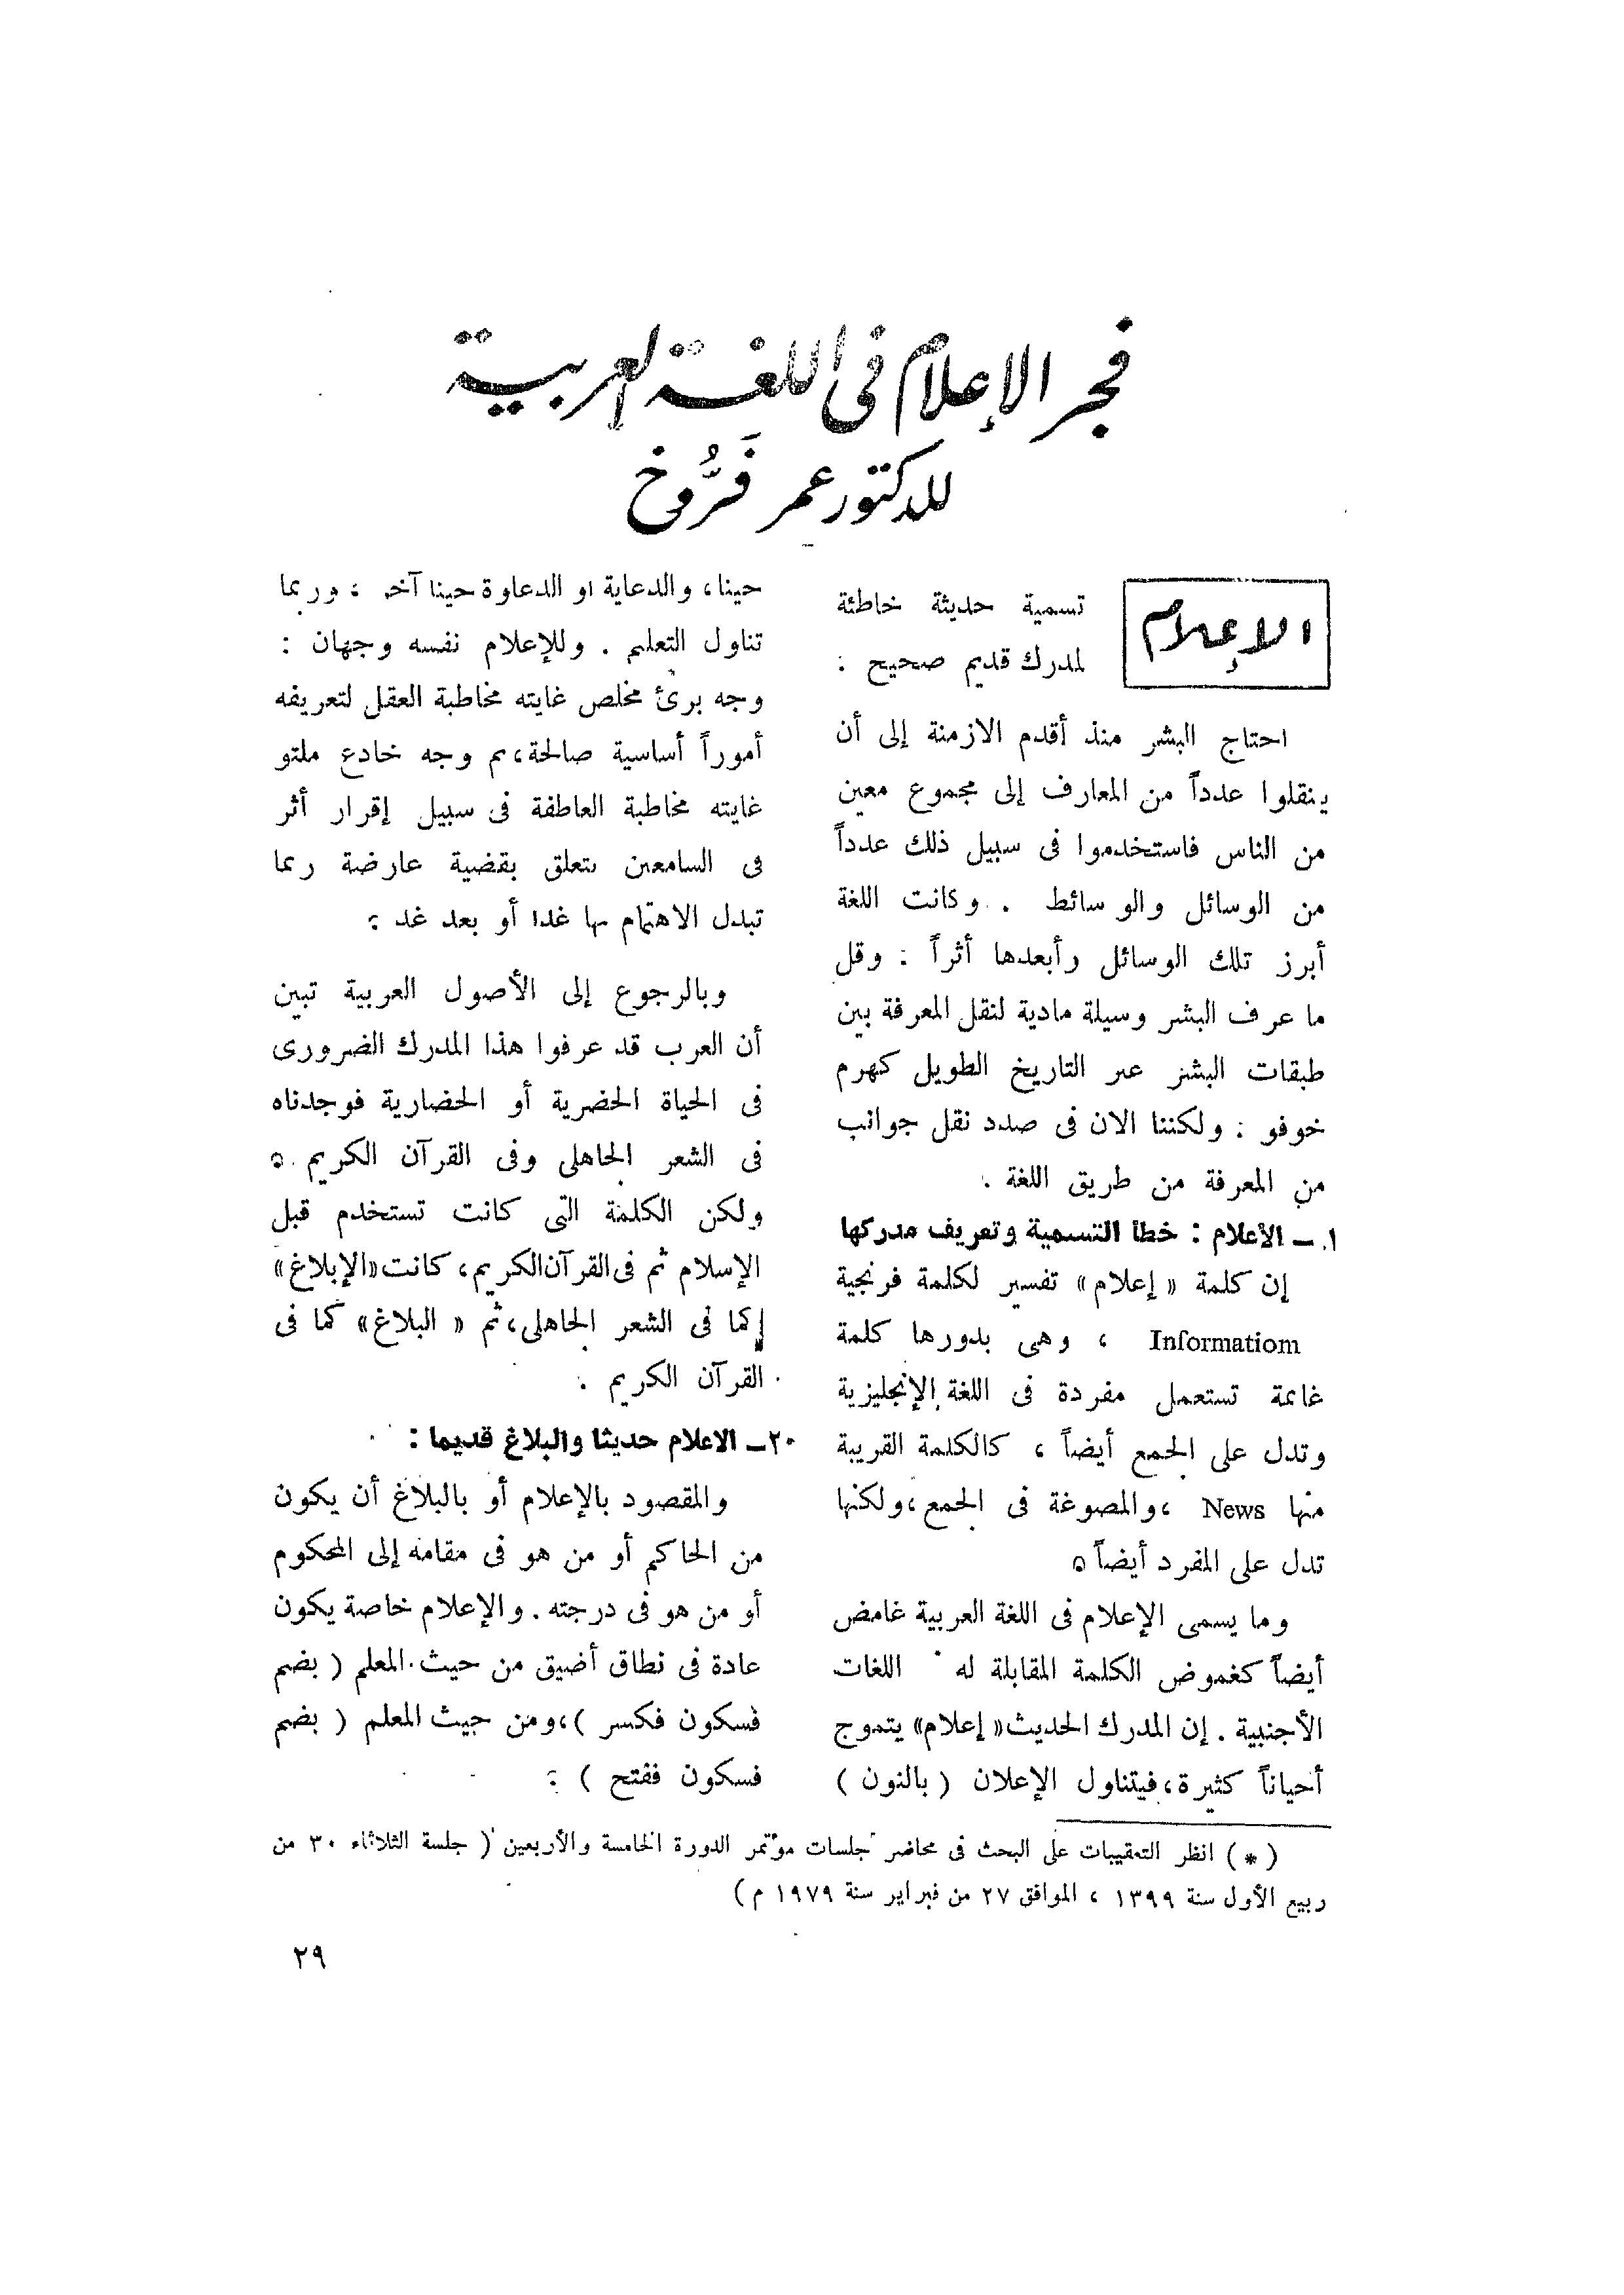 فجر الإعلام فى اللغة العربية
للدكتور عمر فَرُّوخ
الإعلام
تسمية حديثة خاطئة
لمدرك قديم صحيح :
احتاج البشر منذ أقدم الازمنة إلى أن
ينقلوا عدداً من المعارف إلى مجموع معين
من الناس فاستخدموا فى سبيل ذلك عدداً
من الوسائل والوسائط . وكانت اللغة
أبرز تلك الوسائل وأبعدها أثراً : وقل
ما عرف البشر وسيلة مادية لنقل المعرفة بين
طبقات البشر عبر التاريخ الطويل كهرم
خوفو : ولكننا الان فى صدد نقل جوانب
من المعرفة من طريق اللغة .
١ – الأعلام : خطأ التسمية وتعريف مدركها
إن كلمة « إعلام » تفسير لكلمة فرنجية
Informatiom ، وهى بدورها كلمة
غائمة تستعمل مفردة فى اللغة الإنجليزية
وتدل على الجمع أيضاً ، كالكلمة القريبة
منها News ،والمصوغة فى الجمع ،ولكنها
تدل على المفرد أيضاً ٥
وما يسمى الإعلام فى اللغة العربية غامض
أيضاً كغموض الكلمة المقابلة له اللغات
الأجنبية . إن المدرك الحديث «إعلام» يتموج
أحياناً كثيرة ،فيتناول الإعلان ( بالنون )
حينا ، والدعاية او الدعاوة حينا آخر ، وربما
تناول التعليم . وللإعلام نفسه وجهان :
وجه برئ مخلص غايته مخاطبة العقل لتعريفه
أموراً أساسية صالحة ، ثم وجه خادع ملتو
غايته مخاطبة العاطفة فى سبيل إقرار أثر
فى السامعين يتعلق بقضية عارضة ربما
تبدل الاهتمام بها غدا أو بعد غد :
وبالرجوع إلى الأصول العربية تبين
أن العرب قد عرفوا هذا المدرك الضرورى
فى الحياة الحضرية أو الحضارية فوجدناه
فى الشعر الجاهلى وفى القرآن الكريم ٥
ولكن الكلمة التى كانت تستخدم قبل
الإسلام ثم فى القرآن الكريم ، كانت «الإبلاغ»
كما فى الشعر الجاهلى ،ثم « البلاغ » كما فى
القرآن الكريم .
٢ – الاعلام حديثا والبلاغ قديما :
والمقصود بالإعلام أو بالبلاغ أن يكون
من الحاكم أو من هو فى مقامه إلى المحكوم
أو من هو فى درجته . والإعلام خاصة يكون
عادة فى نطاق أضيق من حيث المعلم ( بضم
فسكون فكسر ) ،ومن حيث المعلم ( بضم
فسكون ففتح ) :
( * ) انظر التعقيبات على البحث فى محاضر جلسات مؤتمر الدورة الخامسة والأربعين ( جلسة الثلاثاء ٣٠ من
ربيع الأول سنة ١٣٩٩ ، الموافق ٢٧ من فبراير سنة ١٩٧٩ م )
٢٩